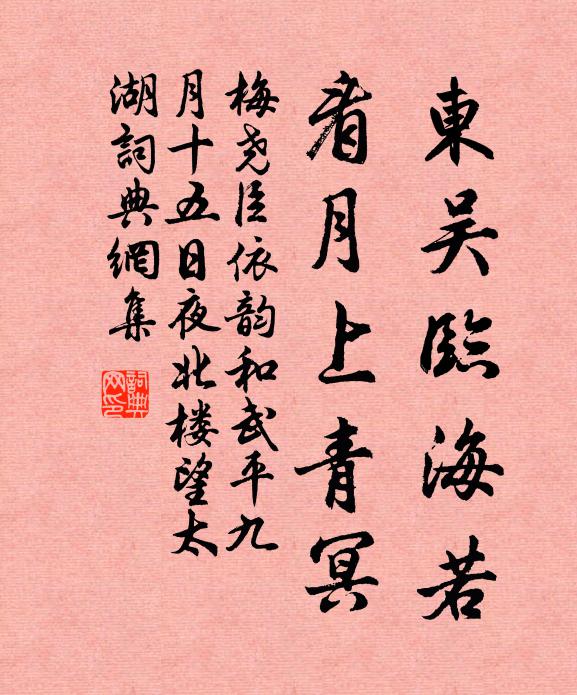 東吴臨海若
看月上青冥
梅尧臣依韵和武平九
月十五日夜北楼望太
湖詞典網集
詞典
网印